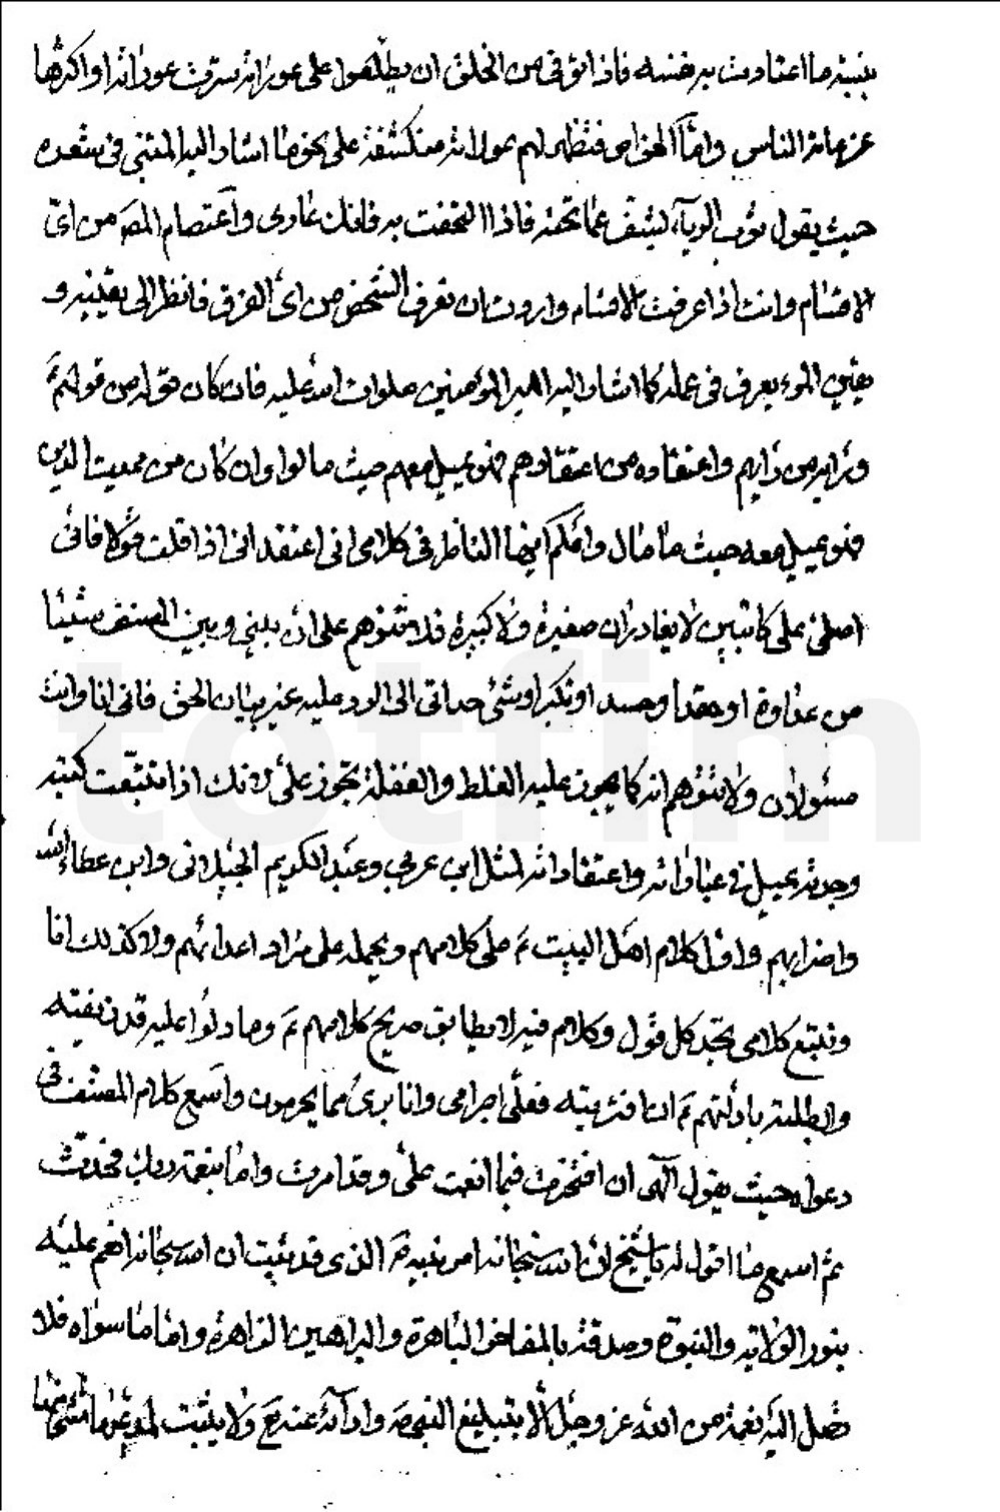 بنيته ما اعتادت به نفسه فاذا اتوقى من الخلق ان يطلعوا على عوراته سترت عوراته او اكثرها
عن عامة الناس وامّا الخواص فتظهر لهم عوراته منكشفة على نحو ما اشار اليه المتنبى فى شعره
حيث يقول ثوب الرياء يشف عما تحته فاذا التحفت به فانك عارى واعتصام المصـ من اى
الاقسام وانت اذا عرفت الاقسام واردت ان تعرف الشخص من اى الفرق فانظر الى يقينه و
يقين المرء يعرف فى عمله كما اشار اليه امير المؤمنين صلوات الله عليه فان كان قوله من قولهم
ورايه من رايهم واعتقاده من اعتقادهم فهو يميل معهم حيث مالوا وان كان من مميت الدين
فهو يميل معه حيث ما مال واعلم ايها الناظر فى كلامى انى اعتقد انى اذا قلت قولا فانى
املى على كاتبين لا يغادران صغيرة ولا كبيرة فلا تتوهم على ان بينى وبين المصنف شيئا
من عداوة او حقد او حسد او تكبر او شئ حدانى الى الرد عليه غير بيان الحق فانى انا وانت
مسئولان ولا تتوهم انه كما يجوز عليه الغلط والغفلة تجوز على لانك اذا تتبّعت كتبه
وجدته يميل فى عباراته واعتقاداته لمثل ابن عربى وعبد الكريم الجيلانى وابن عطاء الله
واضرابهم واول كلام اهل البيت ع على كلامهم ويحمله على مراد اعدائهم ولا كذلك انا
وتتبع كلامى تجد كل قول وكلام فيه لا يطابق صريح كلامهم ع وما دلوا عليه قد نفيته
وابطلته بادلتهم ع انا افتريته فعلّى اجرامى وانا برئ مما يجرمون واسمع كلام المصنف فى
دعواه حيث يقول آلهى ان افتخرت فيما انعمت علىّ وقد امرت واما بنعمة ربك فحدث
ثم اسمع ما اقول له يا شيخ ان الله سبحانه امر نبيه ص الذى قد ثبت ان الله سبحانه انعم عليه
بنور الولاية والنبوة وصدقه بالمفاخر الباهرة والبراهين الزاهرة واما ما سواه فلا
تصل اليه نعمة من الله عز وجل الا بتبليغ النبى ص وادائه عنه ع ولا يثبت لمدعيها